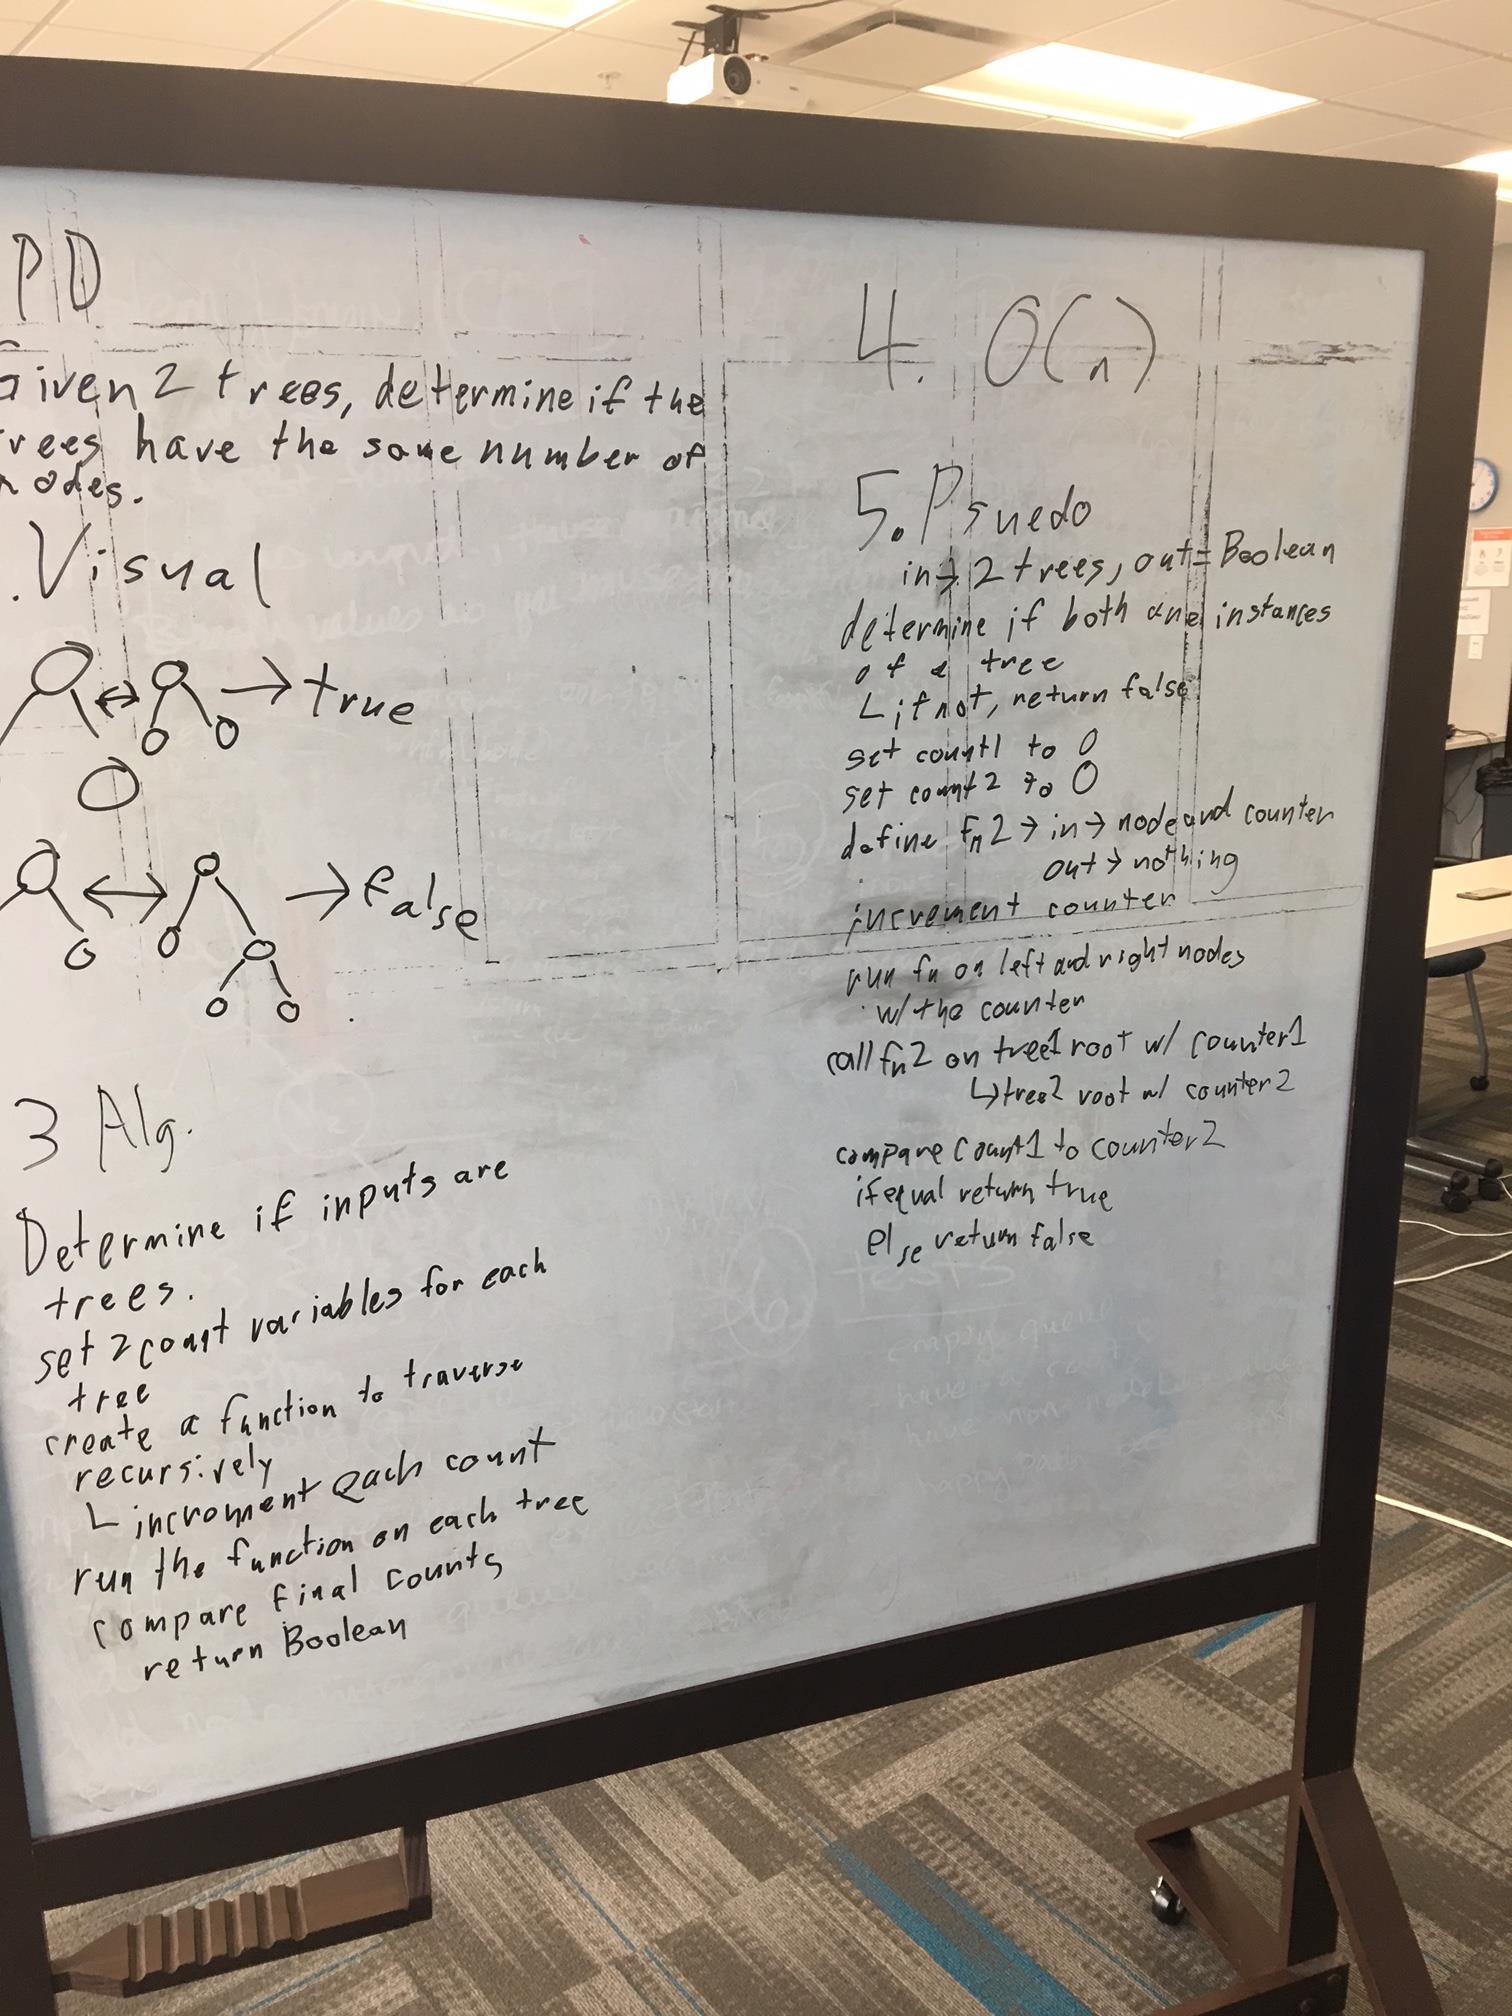 PD
Given 2 trees, determine if the
trees have the same number of
nodes.
. Visual
true
false
3 Alg.
Determine if inputs are
trees.
set 2 count variables for each
tree
create a function to traverse
recursively
└ increment each count
run the function on each tree
compare final counts
return Boolean
4. O(n)
5. Psuedo
in→ 2 trees, out= Boolean
determine if both are instances
of a tree
└ if not, return false
set count1 to 0
set count2 to 0
define fn2 → in → node and counter
out → nothing
increment counter
run fn on left and right nodes
w/ the counter
call fn2 on tree1 root w/ counter1
↳ tree2 root w/ counter2
compare count1 to counter2
if equal return true
else return false
6 tests
empty queue